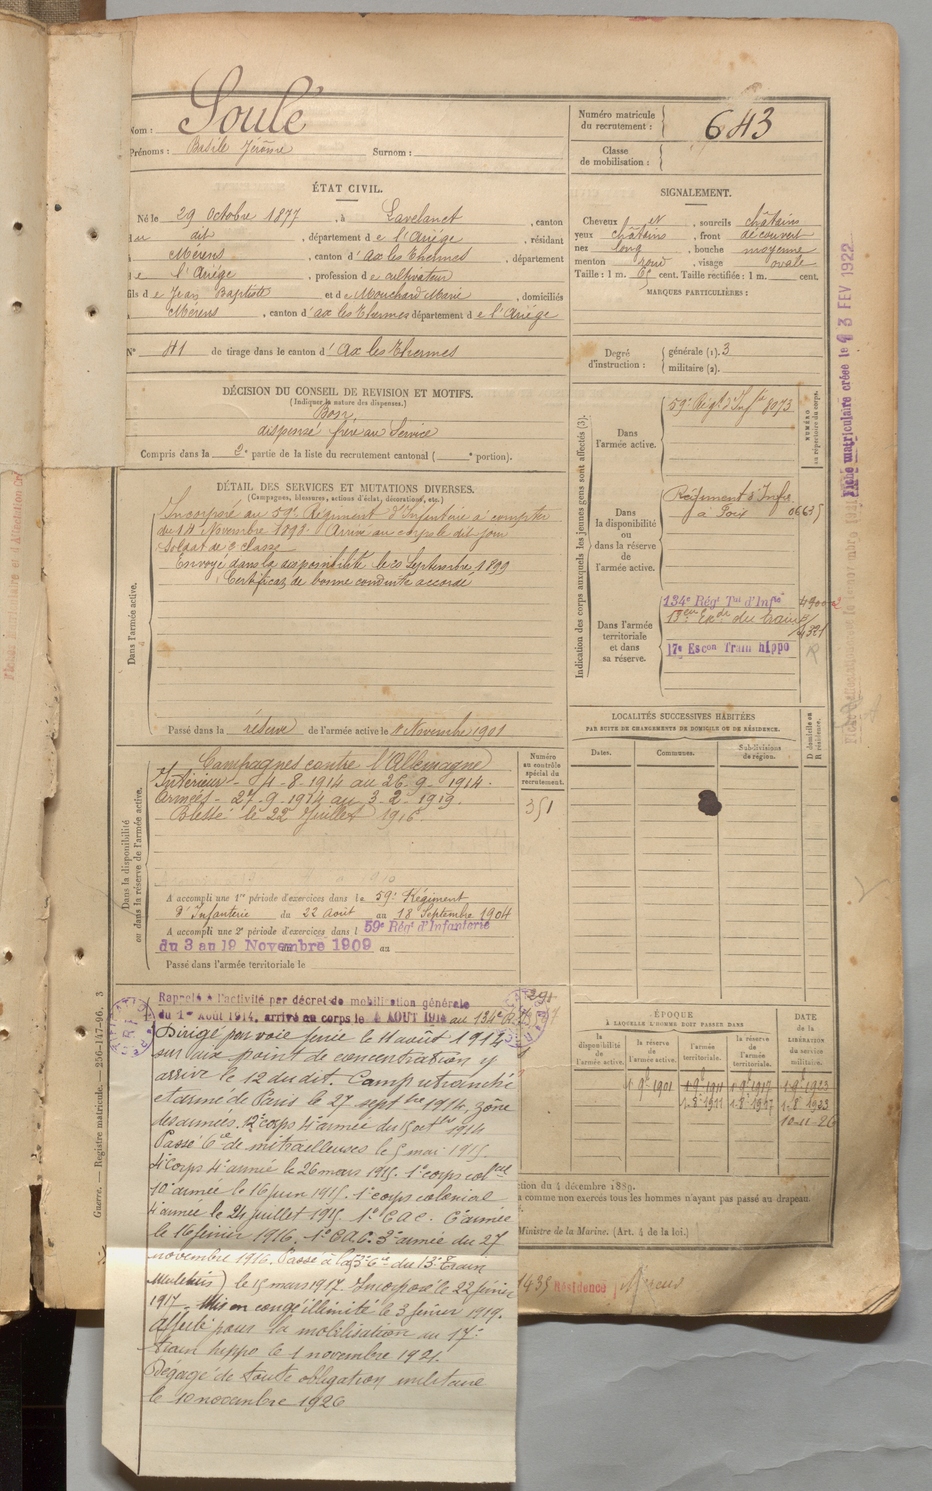 Nom : Soulé
Prénoms : Basile Jérôme Surnom :
Numéro matricule du recrutement : 643
Classe de mobilisation :
ÉTAT CIVIL.
Né le 29 Octobre 1877, à Lavelanet, canton
du dit, département de l'Ariège, résidant
à Mérens, canton d'Ax les Thermes, département
de l'Ariège, profession de cultivateur
fils de Jean Baptiste et de Mouchard Marie, domiciliés
à Mérens, canton d'ax les Thermes département de l'Ariège
N° 41 de tirage dans le canton d'Ax les Thermes
SIGNALEMENT.
Cheveux et, sourcils châtains
yeux châtains, front découvert
nez long, bouche moyenne
menton rond, visage ovale
Taille : 1 m. 65 cent. Taille rectifiée : 1 m. cent.
MARQUES PARTICULIÈRES :
Degré d'instruction : générale (1). 3
militaire (2).
DÉCISION DU CONSEIL DE REVISION ET MOTIFS.
(Indiquer la nature des dispenses.)
Bon
dispensé frère au Service
Compris dans la 2e partie de la liste du recrutement cantonal ( e portion).
DÉTAIL DES SERVICES ET MUTATIONS DIVERSES.
(Campagnes, blessures, actions d'éclat, décorations, etc.)
Dans l'armée active.
Incorporé au 59e Régiment d'Infanterie à compter
du 14 Novembre 1898. Arrivé au corps le dit jour
Soldat de 2e classe
Envoyé dans la disponibilité le 20 Septembre 1899
Certificat de bonne conduite accordé
Passé dans la réserve de l'armée active le 1 Novembre 1901
Indication des corps auxquels les jeunes gens sont affectés (3).
NUMÉRO au répertoire du corps.
Dans l'armée active.
59e Régt d'Inft 8073
Dans la disponibilité ou dans la réserve de l'armée active.
Régiment d'Infie
à Foix 06635
Dans l'armée territoriale et dans sa réserve.
134e Régt Tal d'Infie
du train
17e Escon Train hippo
Fiche matriculaire créée le 3 FEV 1922
LOCALITÉS SUCCESSIVES HABITÉES
PAR SUITE DE CHANGEMENTS DE DOMICILE OU DE RÉSIDENCE.
Dates.
Communes.
Subdivisions de région.
D domicile ou R résidence.
Dans la disponibilité ou dans la réserve de l'armée active.
Campagnes contre l'Allemagne
Intérieur - 4-8-1914 au 26-9-1914.
Armées - 27-9-1914 au 3-2-1919.
Blessé le 22 Juillet 1916
Numéro au contrôle spécial du recrutement.
351
A accompli une 1re période d'exercices dans le 59e Régiment
d'Infanterie du 22 Août au 18 Septembre 1904
A accompli une 2e période d'exercices dans l 59e Régt d'Infanterie
du 3 au 19 Novembre 1909 au
Passé dans l'armée territoriale le
Rappelé à l'activité par décret de mobilisation générale
du 1er Août 1914, arrivé au corps le 4 AOUT 1914 au 134e
Dirigé par voie ferrée le 11 août 1914
sur aux point de concentration y
arrive le 12 du dit. Camp retranché
et armé de Paris le 27 septbre 1914, zône
des armées. 12e corps 4e armée du 15 octbre 1914
Passé 6e Cie de mitrailleuses le 5 mai 1915.
4e corps 4e armée le 26 mars 1915. 1er corps colal
10e armée le 16 juin 1915. 1er corps colonial
4e armée le 24 juillet 1915. 1er C.A.C. 6e armée
le 16 février 1916. 1er C.A.C. 3e armée du 27
novembre 1916. Passé à la 53e Cie du 13e Train
(Muletiers) le 15 mars 1917. Incorporé le 22 février
1917. Mis en congé illimité le 3 février 1919.
Affecté pour la mobilisation au 17e
train hippo le 1 novembre 1921.
Dégagé de toute obligation militaire
le 10 novembre 1926
ÉPOQUE
À LAQUELLE L'HOMME DOIT PASSER DANS
la disponibilité de l'armée active.
la réserve de l'armée active.
l'armée territoriale.
la réserve de l'armée territoriale.
DATE de la LIBÉRATION du service militaire.
1 9bre 1901
1 9bre 1911
1 9bre 1917
1 9bre 1923
10-11-26
tion du 4 décembre 1889.
comme non exercés tous les hommes n'ayant pas passé au drapeau.
Ministre de la Marine. (Art. 4 de la loi.)
Résidence
Guerre. — Registre matricule. — 256-147-96. 3